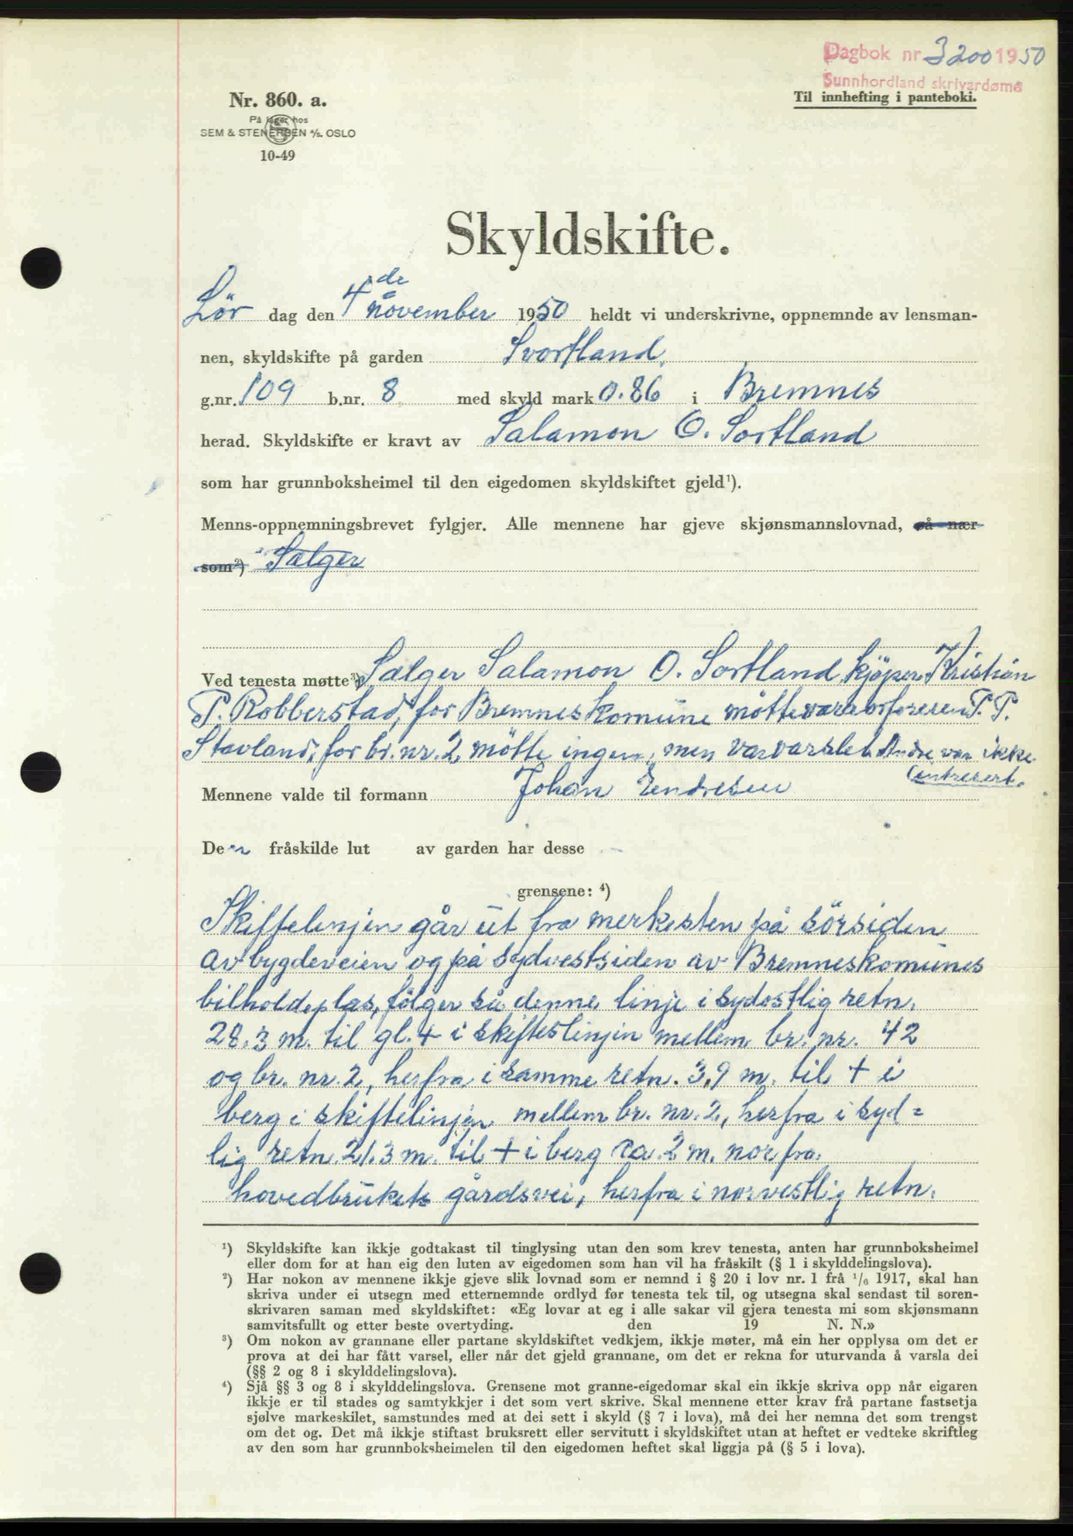 Dagbok nr 3200 1950
Sunnhordland skrivardøme
Nr. 860. a.
Til innhefting i panteboki.
På lager hos
SEM & STENERSEN A/S. OSLO
10-49
Skyldskifte.
Lör dag den 4de november 1950 heldt vi underskrivne, oppnemnde av lensman-
nen, skyldskifte på garden Svortland
g.nr. 109 b.nr. 8 med skyld mark 0.86 i Bremnes
herad. Skyldskifte er kravt av Salamon O. Sortland
som har grunnboksheimel til den eigedomen skyldskiftet gjeld¹).
Menns-oppnemningsbrevet fylgjer. Alle mennene har gjeve skjønsmannslovnad, så nær
som²) Sælger
Ved tenesta møtte³) Sælger Salamon O. Sortland, kjöper Kristian
P. Robberstad, for Bremnes komune mötte varaorföreren P. P.
Stavland, for br. nr. 2 mötte ingen, men var varslet. Andre var ikke
intresert.
Mennene valde til formann Johan Endresen
Den fråskilde lut av garden har desse
grensene: ⁴)
Skiftelinjen går ut fra merkesten på sörsiden
av bygdeveien og på sydvestsiden av Bremneskomunes
bilholdeplas, fölger så denne linje i sydostlig retn.
28.3 m. til gl. + i skifteslinjen mellem br. nr. 42
og br. nr. 2, herfra i samme retn. 3,9 m. til + i
berg i skiftelinjen mellem br. nr. 2, herfra i syd=
lig retn. 21.3 m. til + i berg ca. 2 m. nor fra
hovedbrukets gårdsvei, herfra i norvestlig retn.
¹) Skyldskifte kan ikkje godtakast til tinglysing utan den som krev tenesta, anten har grunnboksheimel
eller dom for at han eig den luten av eigedomen som han vil ha fråskilt (§ 1 i skylddelingslova).
²) Har nokon av mennene ikkje gjeve slik lovnad som er nemnd i § 20 i lov nr. 1 frå ¹/₆ 1917, skal han
skriva under ei utsegn med etternemnde ordlyd før tenesta tek til, og utsegna skal sendast til soren-
skrivaren saman med skyldskiftet: «Eg lovar at eg i alle sakar vil gjera tenesta mi som skjønsmann
samvitsfullt og etter beste overtyding. den 19 N. N.»
³) Om nokon av grannane eller partane skyldskiftet vedkjem, ikkje møter, må ein her opplysa om det er
prova at dei har fått varsel, eller når det gjeld grannane, om det er rekna for uturvanda å varsla dei
(§§ 2 og 8 i skylddelingslova).
⁴) Sjå §§ 3 og 8 i skylddelingslova. Grensene mot granne-eigedomar skal ein ikkje skriva opp når eigaren
ikkje er til stades og samtykkjer i det som vert skrive. Skal mennene etter krav frå partane fastsetja
sjølve markeskilet, samstundes med at dei sett i skyld (§ 7 i lova), må dei her nemna det som trengst
om det og. Det må ikkje stiftast bruksrett eller servitutt i skyldskiftet utan at heftet er vedteke skriftleg
av den som har grunnboksheimelen til den eigedomen heftet skal liggja på (§ 5 i lova).